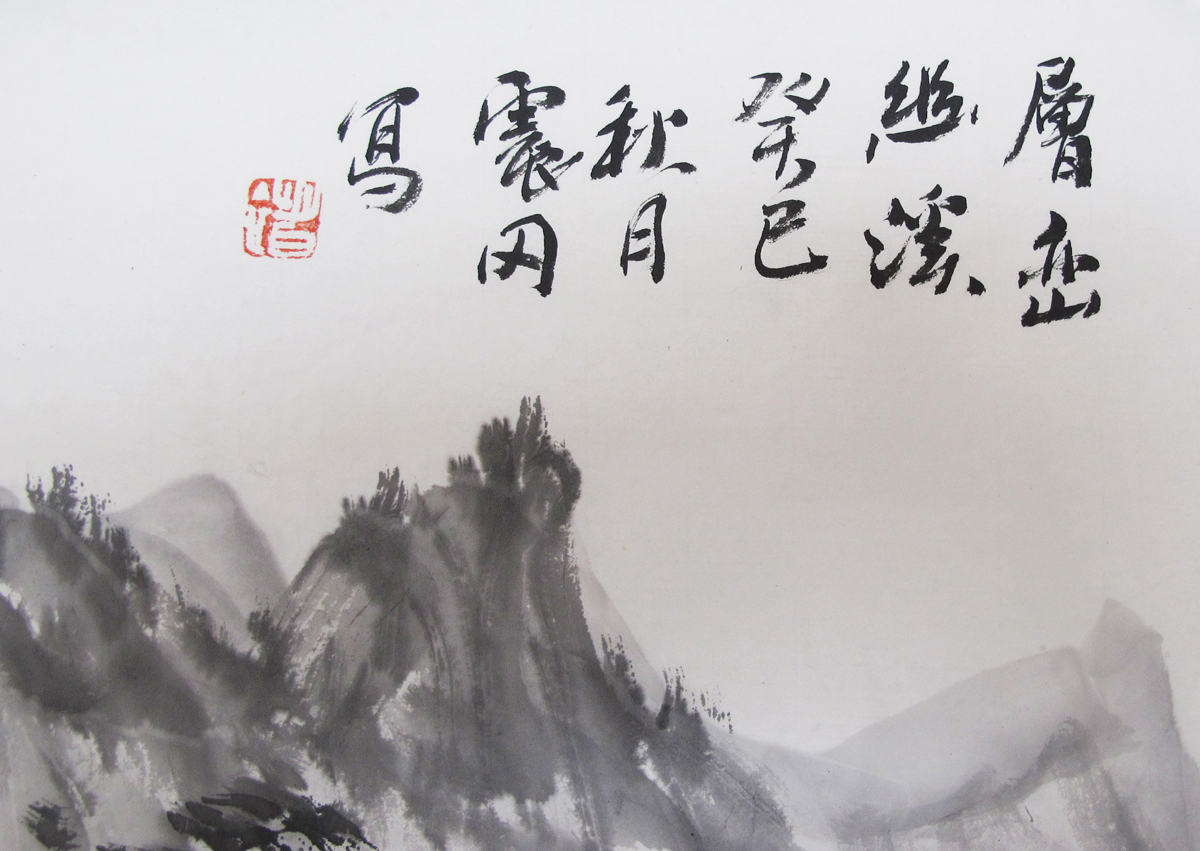 層巒
幽溪
癸巳
秋月
震冈
寫